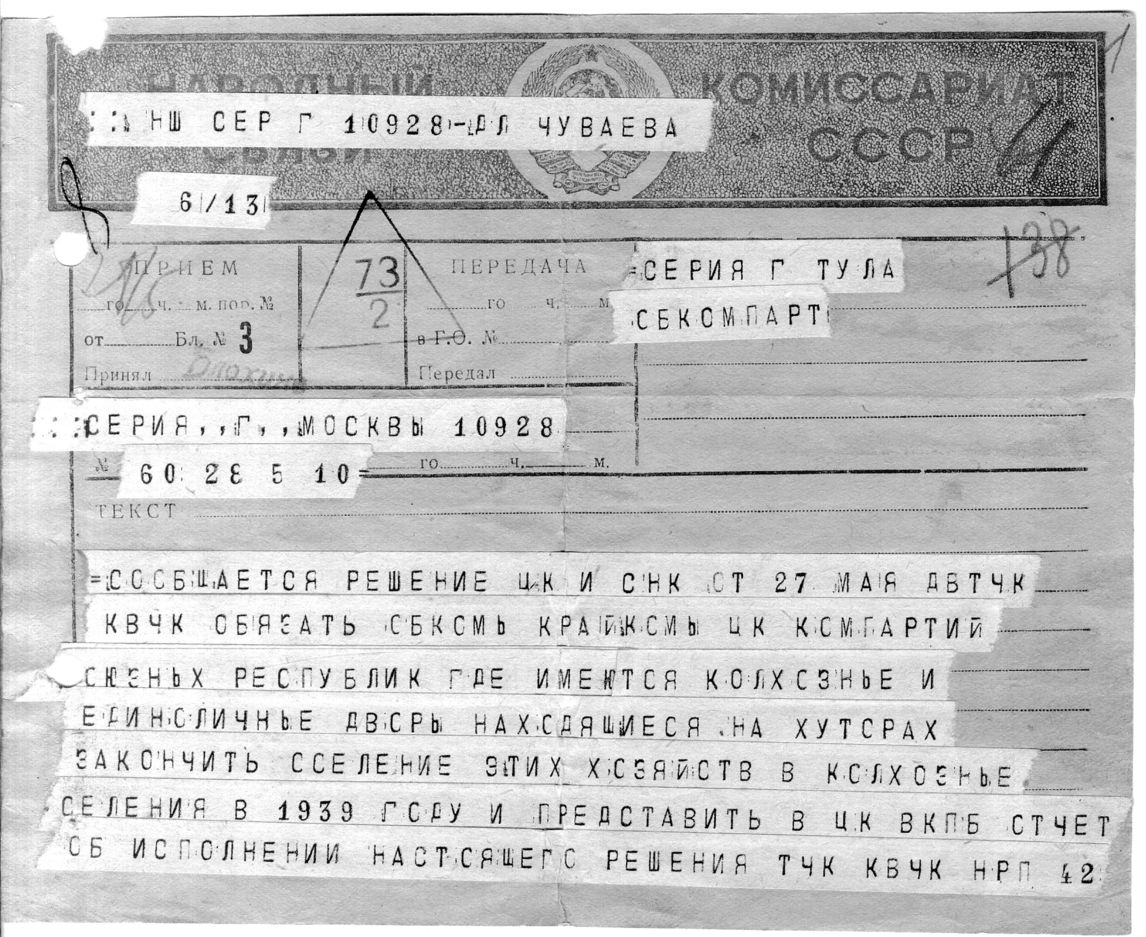 НАРОДНЫЙ КОМИССАРИАТ
СВЯЗИ СССР
НШ СЕР Г 10928-ДЛ ЧУВАЕВА
6/13
8
138
ПРИЕМ
го ч. м. пор. №
от Бл. № 3
Принял
73
2
ПЕРЕДАЧА
го ч. м
в Г.О. №
Передал
=СЕРИЯ Г ТУЛА
СБКОМПАРТ
СЕРИЯ,,Г,,МОСКВЫ 10928
№ го ч. м.
60 28 5 10=
ТЕКСТ
=СОСБЩАЕТСЯ РЕШЕНИЕ ЦК И СНК СТ 27 МАЯ ДВТЧК
КВЧК ОБЯЗАТЬ СБКСМЬ КРАЙКСМЫ ЦК КСМГАРТИЙ
СЮЗНЬХ РЕСПУБЛИК ГДЕ ИМЕЮТСЯ КОЛХСЗНЬЕ И
ЕДИНОЛИЧНЬЕ ДВСРЫ НАХСДЯЩИЕСЯ НА ХУТСРАХ
ЗАКОНЧИТЬ ССЕЛЕНИЕ ЭТИХ ХСЗЯЙСТВ В КСЛХОЗНЬЕ
СЕЛЕНИЯ В 1939 ГСДУ И ПРЕДСТАВИТЬ В ЦК ВКПБ СТЧЕТ
СБ ИСПОЛНЕНИИ НАСТСЯЩЕГС РЕШЕНИЯ ТЧК КВЧК НРП 42